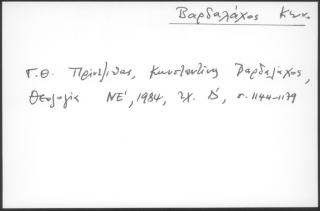 Βαρδαλάχος Κων.
Γ.Θ. Πρίντζιπας, Κωνσταντίνος Βαρδαλάχος,
Θεολογία ΝΕ', 1984, τχ. Δ', σ. 1144-1179